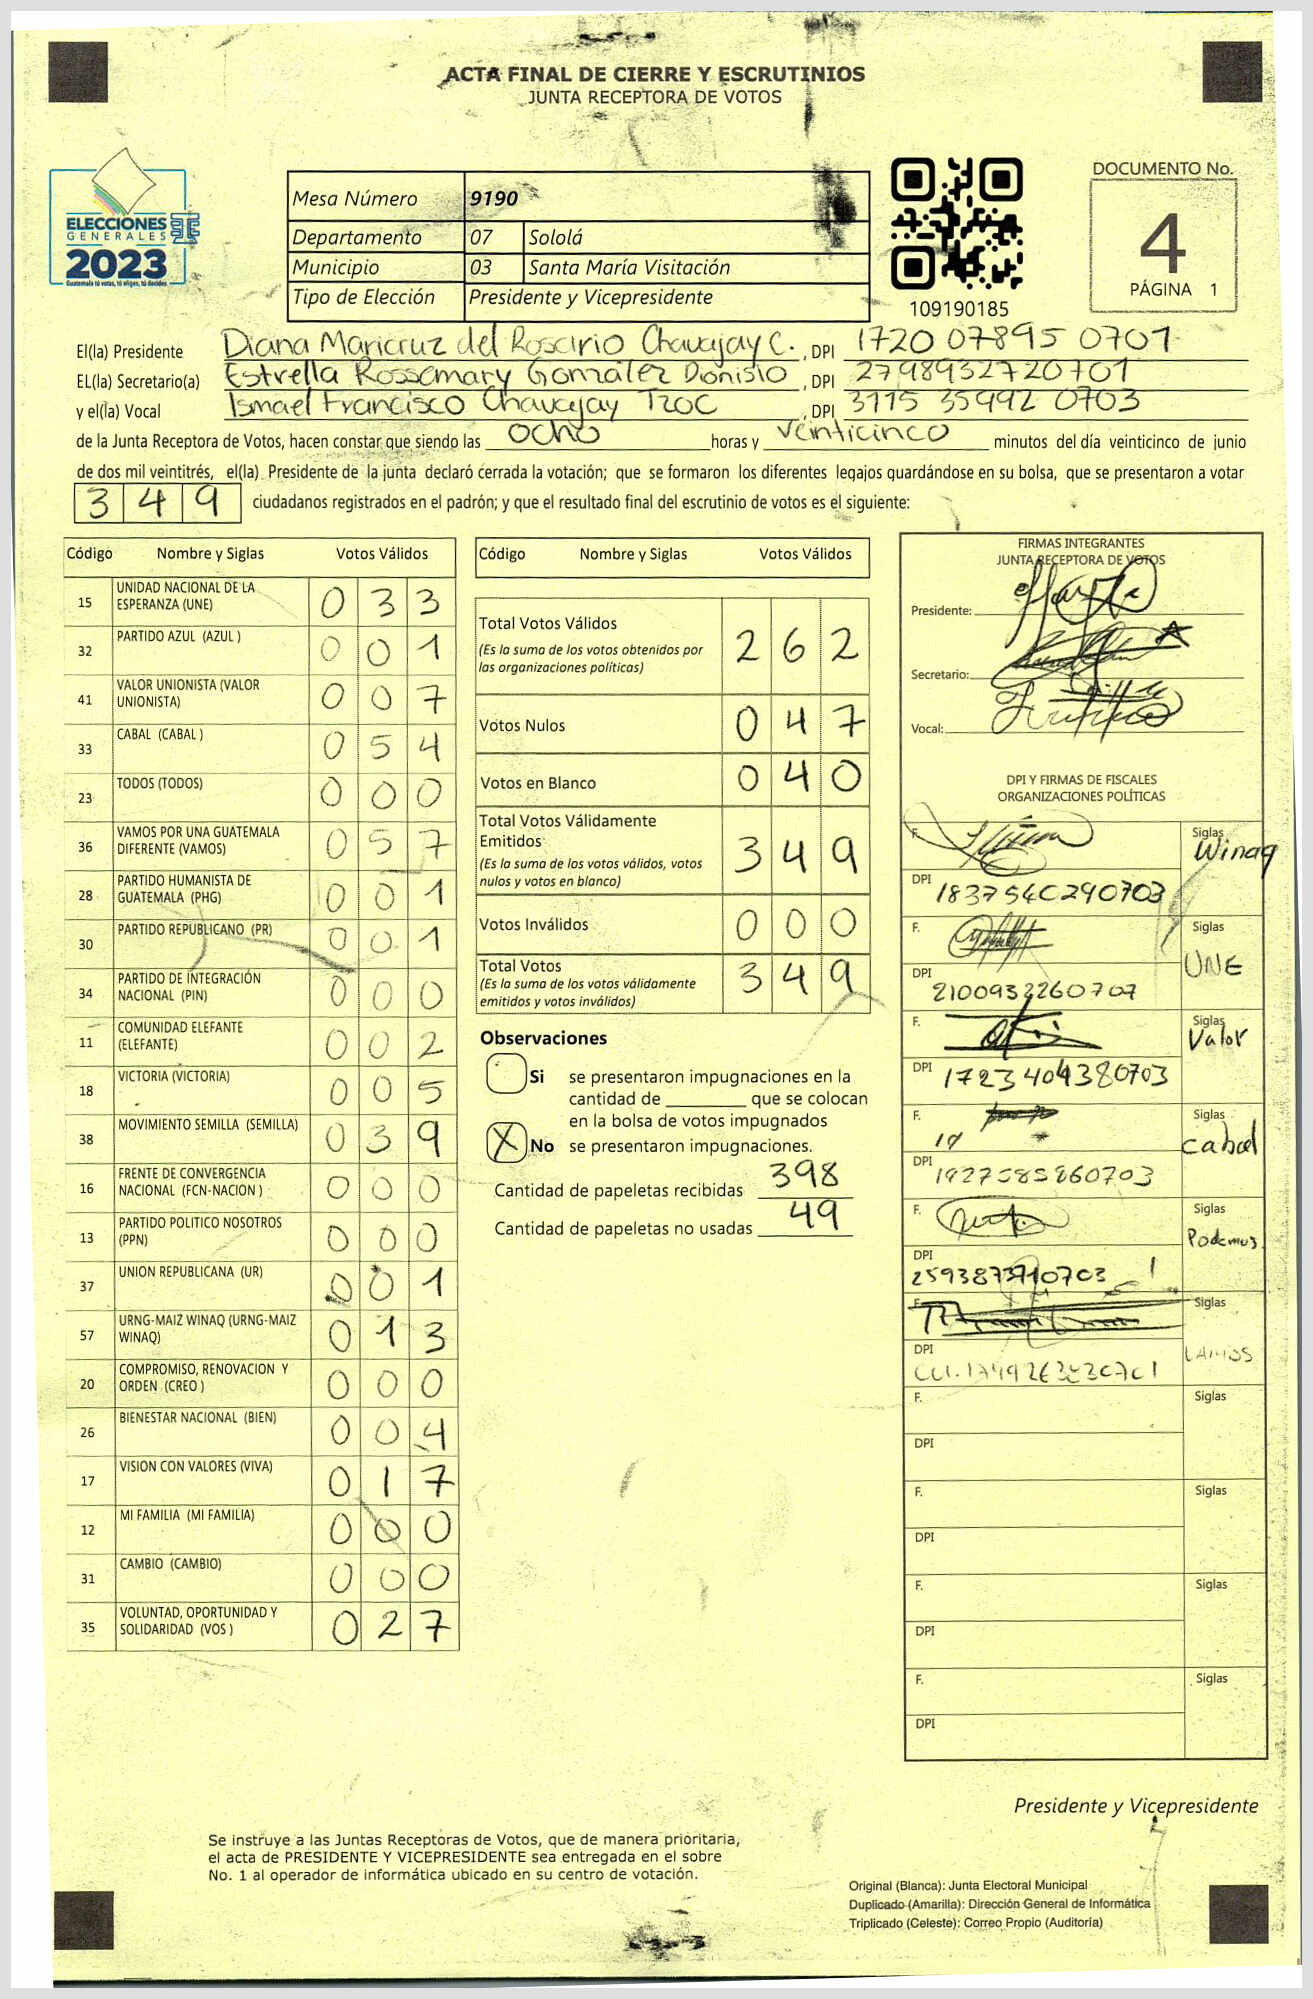 ACTA FINAL DE CIERRE Y ESCRUTINIOS
JUNTA RECEPTORA DE VOTOS
ELECCIONES
GENERALES
2023
Guatemala tú votas, tú eliges, tú decides
Mesa Número 9190
Departamento 07 Sololá
Municipio 03 Santa María Visitación
Tipo de Elección Presidente y Vicepresidente
109190185
DOCUMENTO No.
4
PÁGINA 1
El(la) Presidente Diana Maricruz del Rosario Chavajay C. , DPI 1720 07895 0701
EL(la) Secretario(a) Estrella Rossemary González Dionisio , DPI 2798932720701
y el(la) Vocal Ismael Francisco Chavajay Tzoc , DPI 3115 35992 0703
de la Junta Receptora de Votos, hacen constar que siendo las ocho horas y veinticinco minutos del día veinticinco de junio
de dos mil veintitrés, el(la) Presidente de la junta declaró cerrada la votación; que se formaron los diferentes legajos guardándose en su bolsa, que se presentaron a votar
349 ciudadanos registrados en el padrón; y que el resultado final del escrutinio de votos es el siguiente:
Código Nombre y Siglas Votos Válidos
15 UNIDAD NACIONAL DE LA ESPERANZA (UNE) 033
32 PARTIDO AZUL (AZUL ) 001
41 VALOR UNIONISTA (VALOR UNIONISTA) 007
33 CABAL (CABAL ) 054
23 TODOS (TODOS) 000
36 VAMOS POR UNA GUATEMALA DIFERENTE (VAMOS) 057
28 PARTIDO HUMANISTA DE GUATEMALA (PHG) 001
30 PARTIDO REPUBLICANO (PR) 001
34 PARTIDO DE INTEGRACIÓN NACIONAL (PIN) 000
11 COMUNIDAD ELEFANTE (ELEFANTE) 002
18 VICTORIA (VICTORIA) 005
38 MOVIMIENTO SEMILLA (SEMILLA) 039
16 FRENTE DE CONVERGENCIA NACIONAL (FCN-NACION ) 000
13 PARTIDO POLITICO NOSOTROS (PPN) 000
37 UNION REPUBLICANA (UR) 001
57 URNG-MAIZ WINAQ (URNG-MAIZ WINAQ) 013
20 COMPROMISO, RENOVACION Y ORDEN (CREO ) 000
26 BIENESTAR NACIONAL (BIEN) 004
17 VISION CON VALORES (VIVA) 017
12 MI FAMILIA (MI FAMILIA) 000
31 CAMBIO (CAMBIO) 000
35 VOLUNTAD, OPORTUNIDAD Y SOLIDARIDAD (VOS ) 027
Código Nombre y Siglas Votos Válidos
Total Votos Válidos 262
(Es la suma de los votos obtenidos por
las organizaciones políticas)
Votos Nulos 047
Votos en Blanco 040
Total Votos Válidamente
Emitidos 349
(Es la suma de los votos válidos, votos
nulos y votos en blanco)
Votos Inválidos 000
Total Votos 349
(Es la suma de los votos válidamente
emitidos y votos inválidos)
Observaciones
Si se presentaron impugnaciones en la
cantidad de ________ que se colocan
en la bolsa de votos impugnados
X No se presentaron impugnaciones.
Cantidad de papeletas recibidas 398
Cantidad de papeletas no usadas 49
FIRMAS INTEGRANTES
JUNTA RECEPTORA DE VOTOS
Presidente:
Secretario:
Vocal:
DPI Y FIRMAS DE FISCALES
ORGANIZACIONES POLÍTICAS
F. Siglas Winaq
DPI 183754C290703
F. Siglas UNE
DPI
F. Siglas Valor
DPI 1723404380703
F. Siglas Cabal
DPI
F. Siglas Podemos
DPI
F. Siglas
DPI
F. Siglas
DPI
F. Siglas
DPI
F. Siglas
DPI
F. Siglas
DPI
Presidente y Vicepresidente
Se instruye a las Juntas Receptoras de Votos, que de manera prioritaria,
el acta de PRESIDENTE Y VICEPRESIDENTE sea entregada en el sobre
No. 1 al operador de informática ubicado en su centro de votación.
Original (Blanca): Junta Electoral Municipal
Duplicado (Amarilla): Dirección General de Informática
Triplicado (Celeste): Correo Propio (Auditoría)